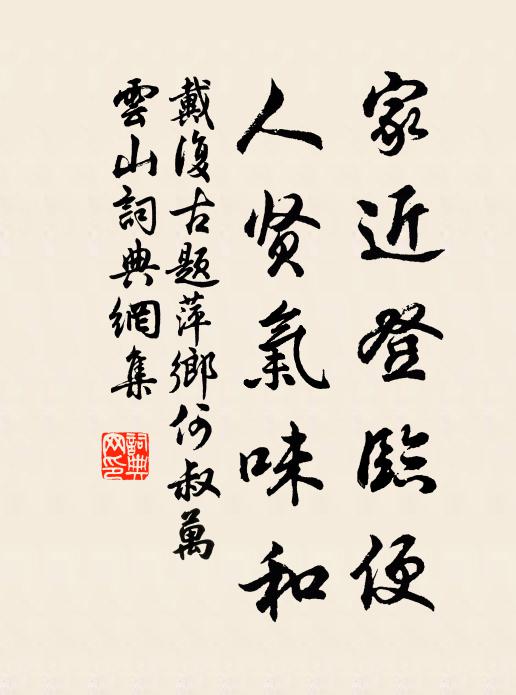 家近登臨便
人贤氣味和
戴復古题萍鄉何叔萬
雲山詞典網集
詞典
网印